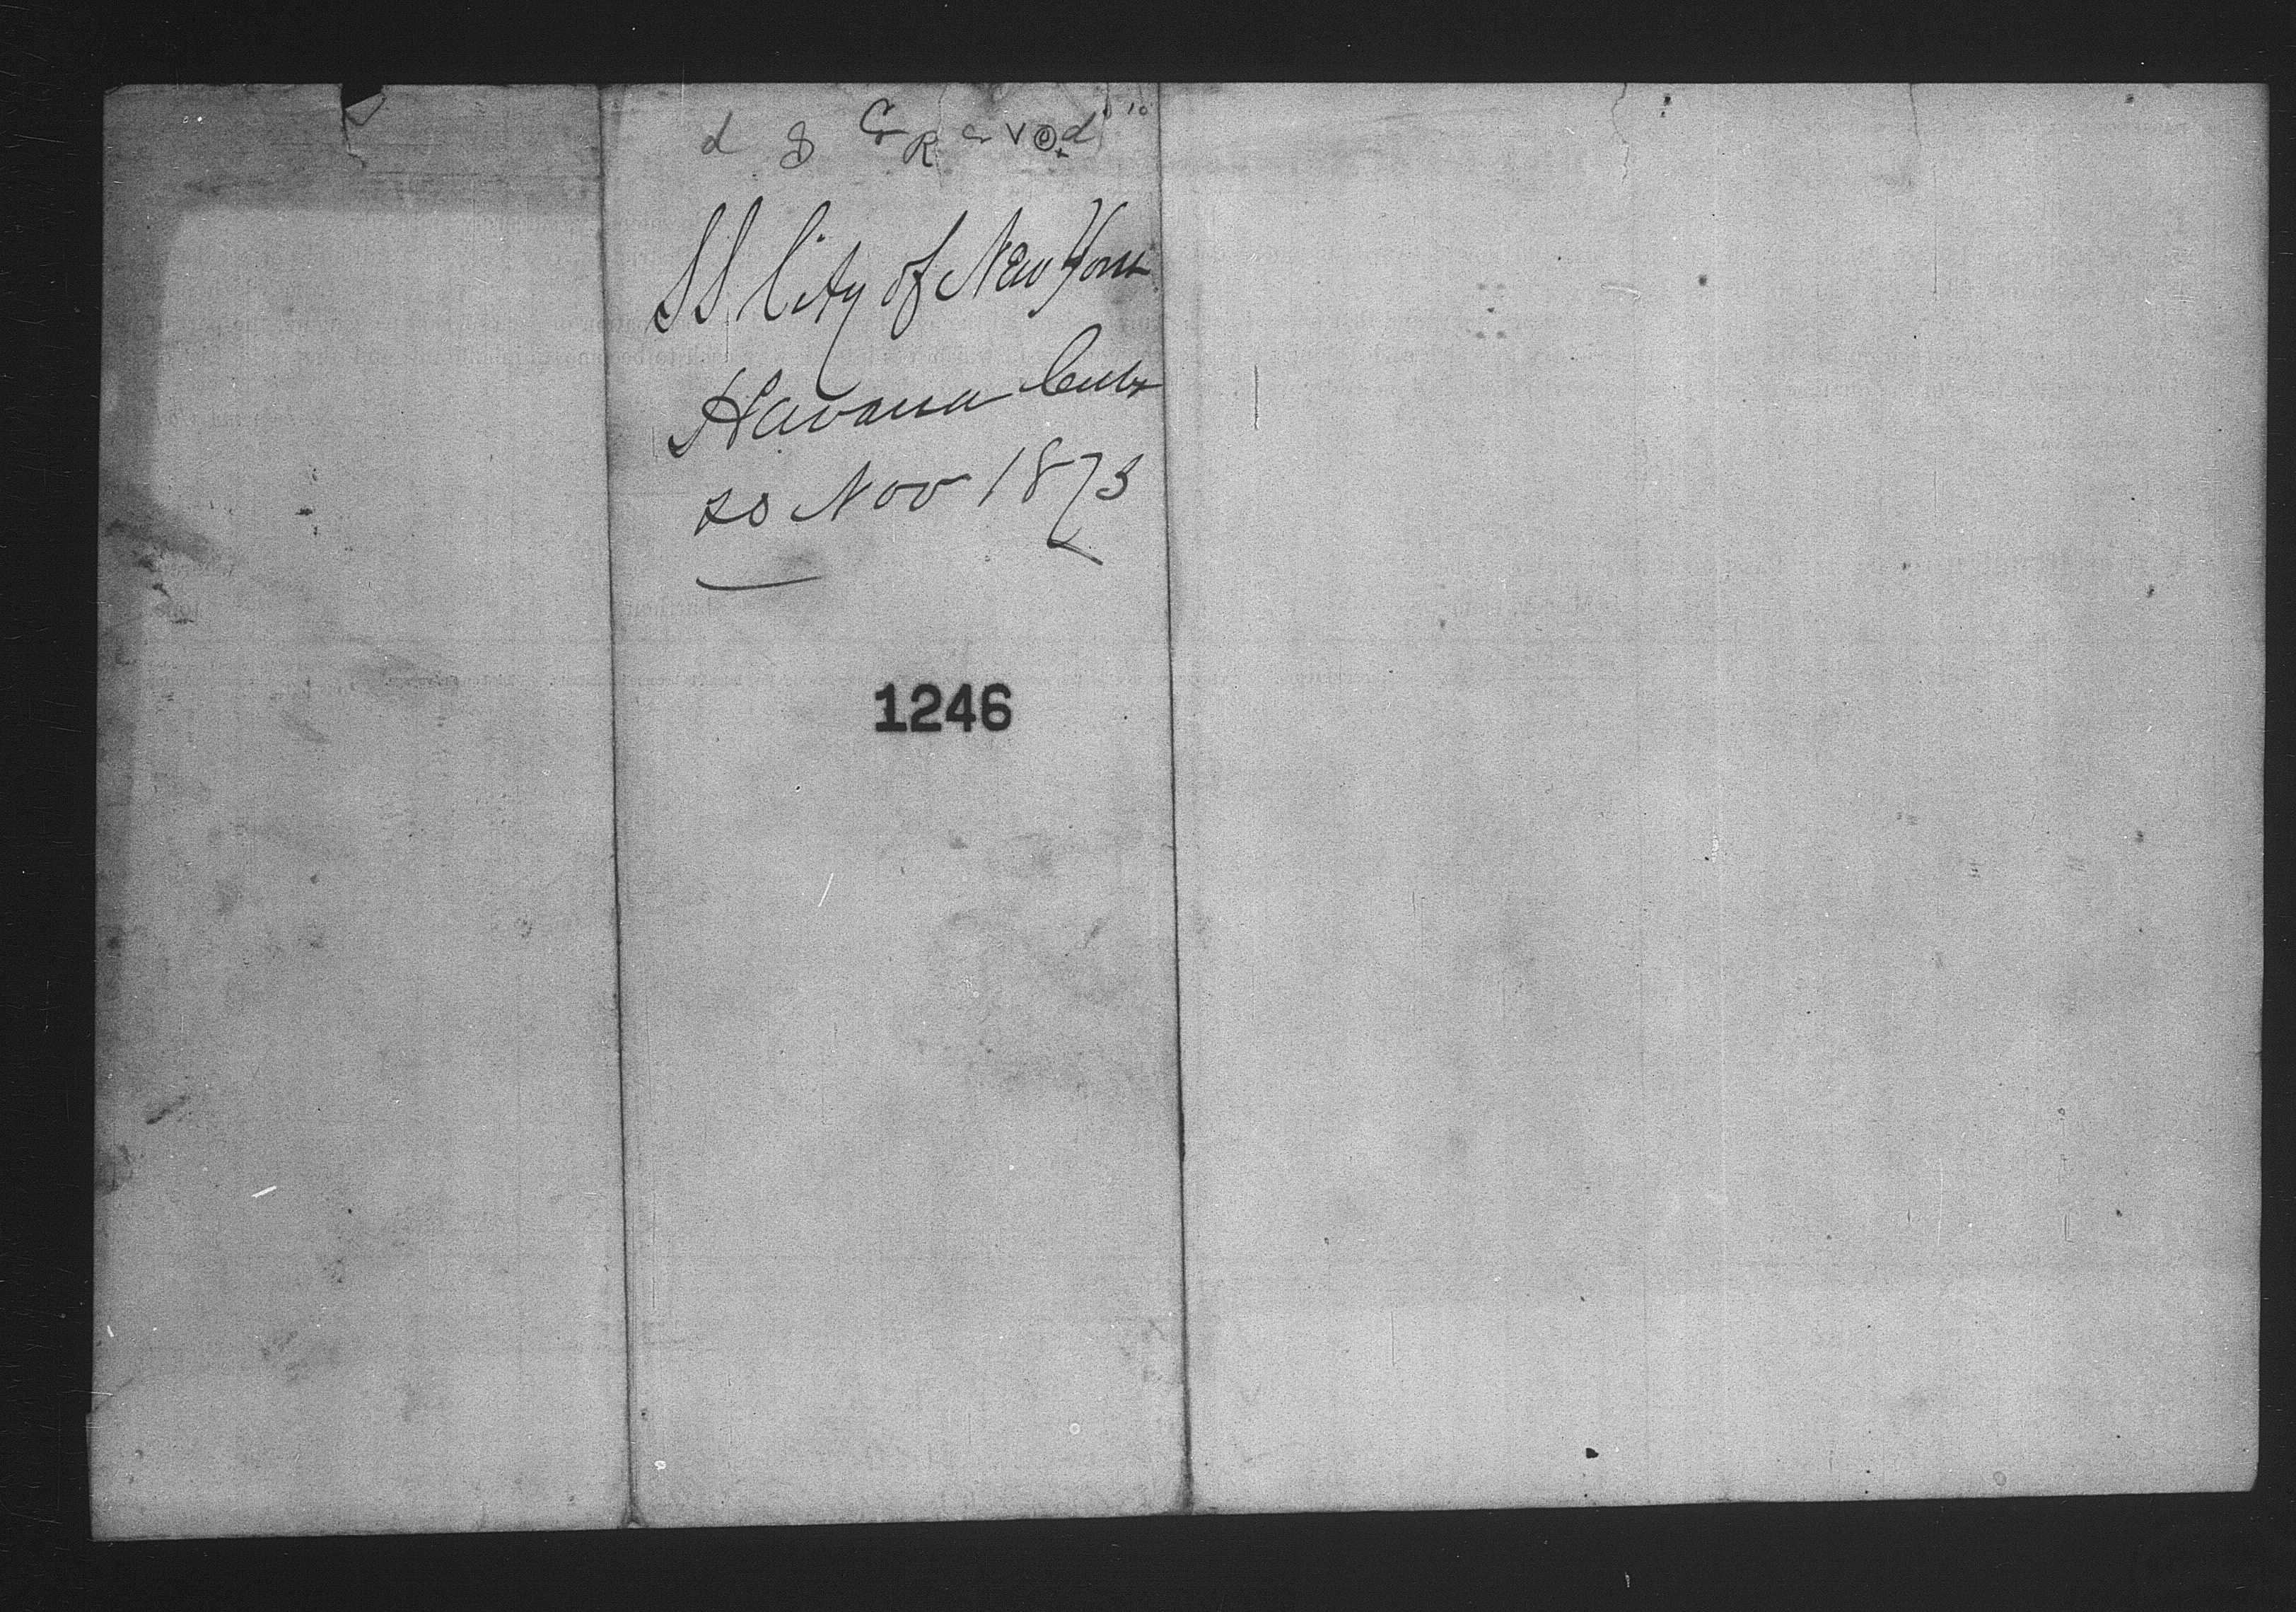 SS City of New York
Havana Cuba
20 Nov 1873
1246